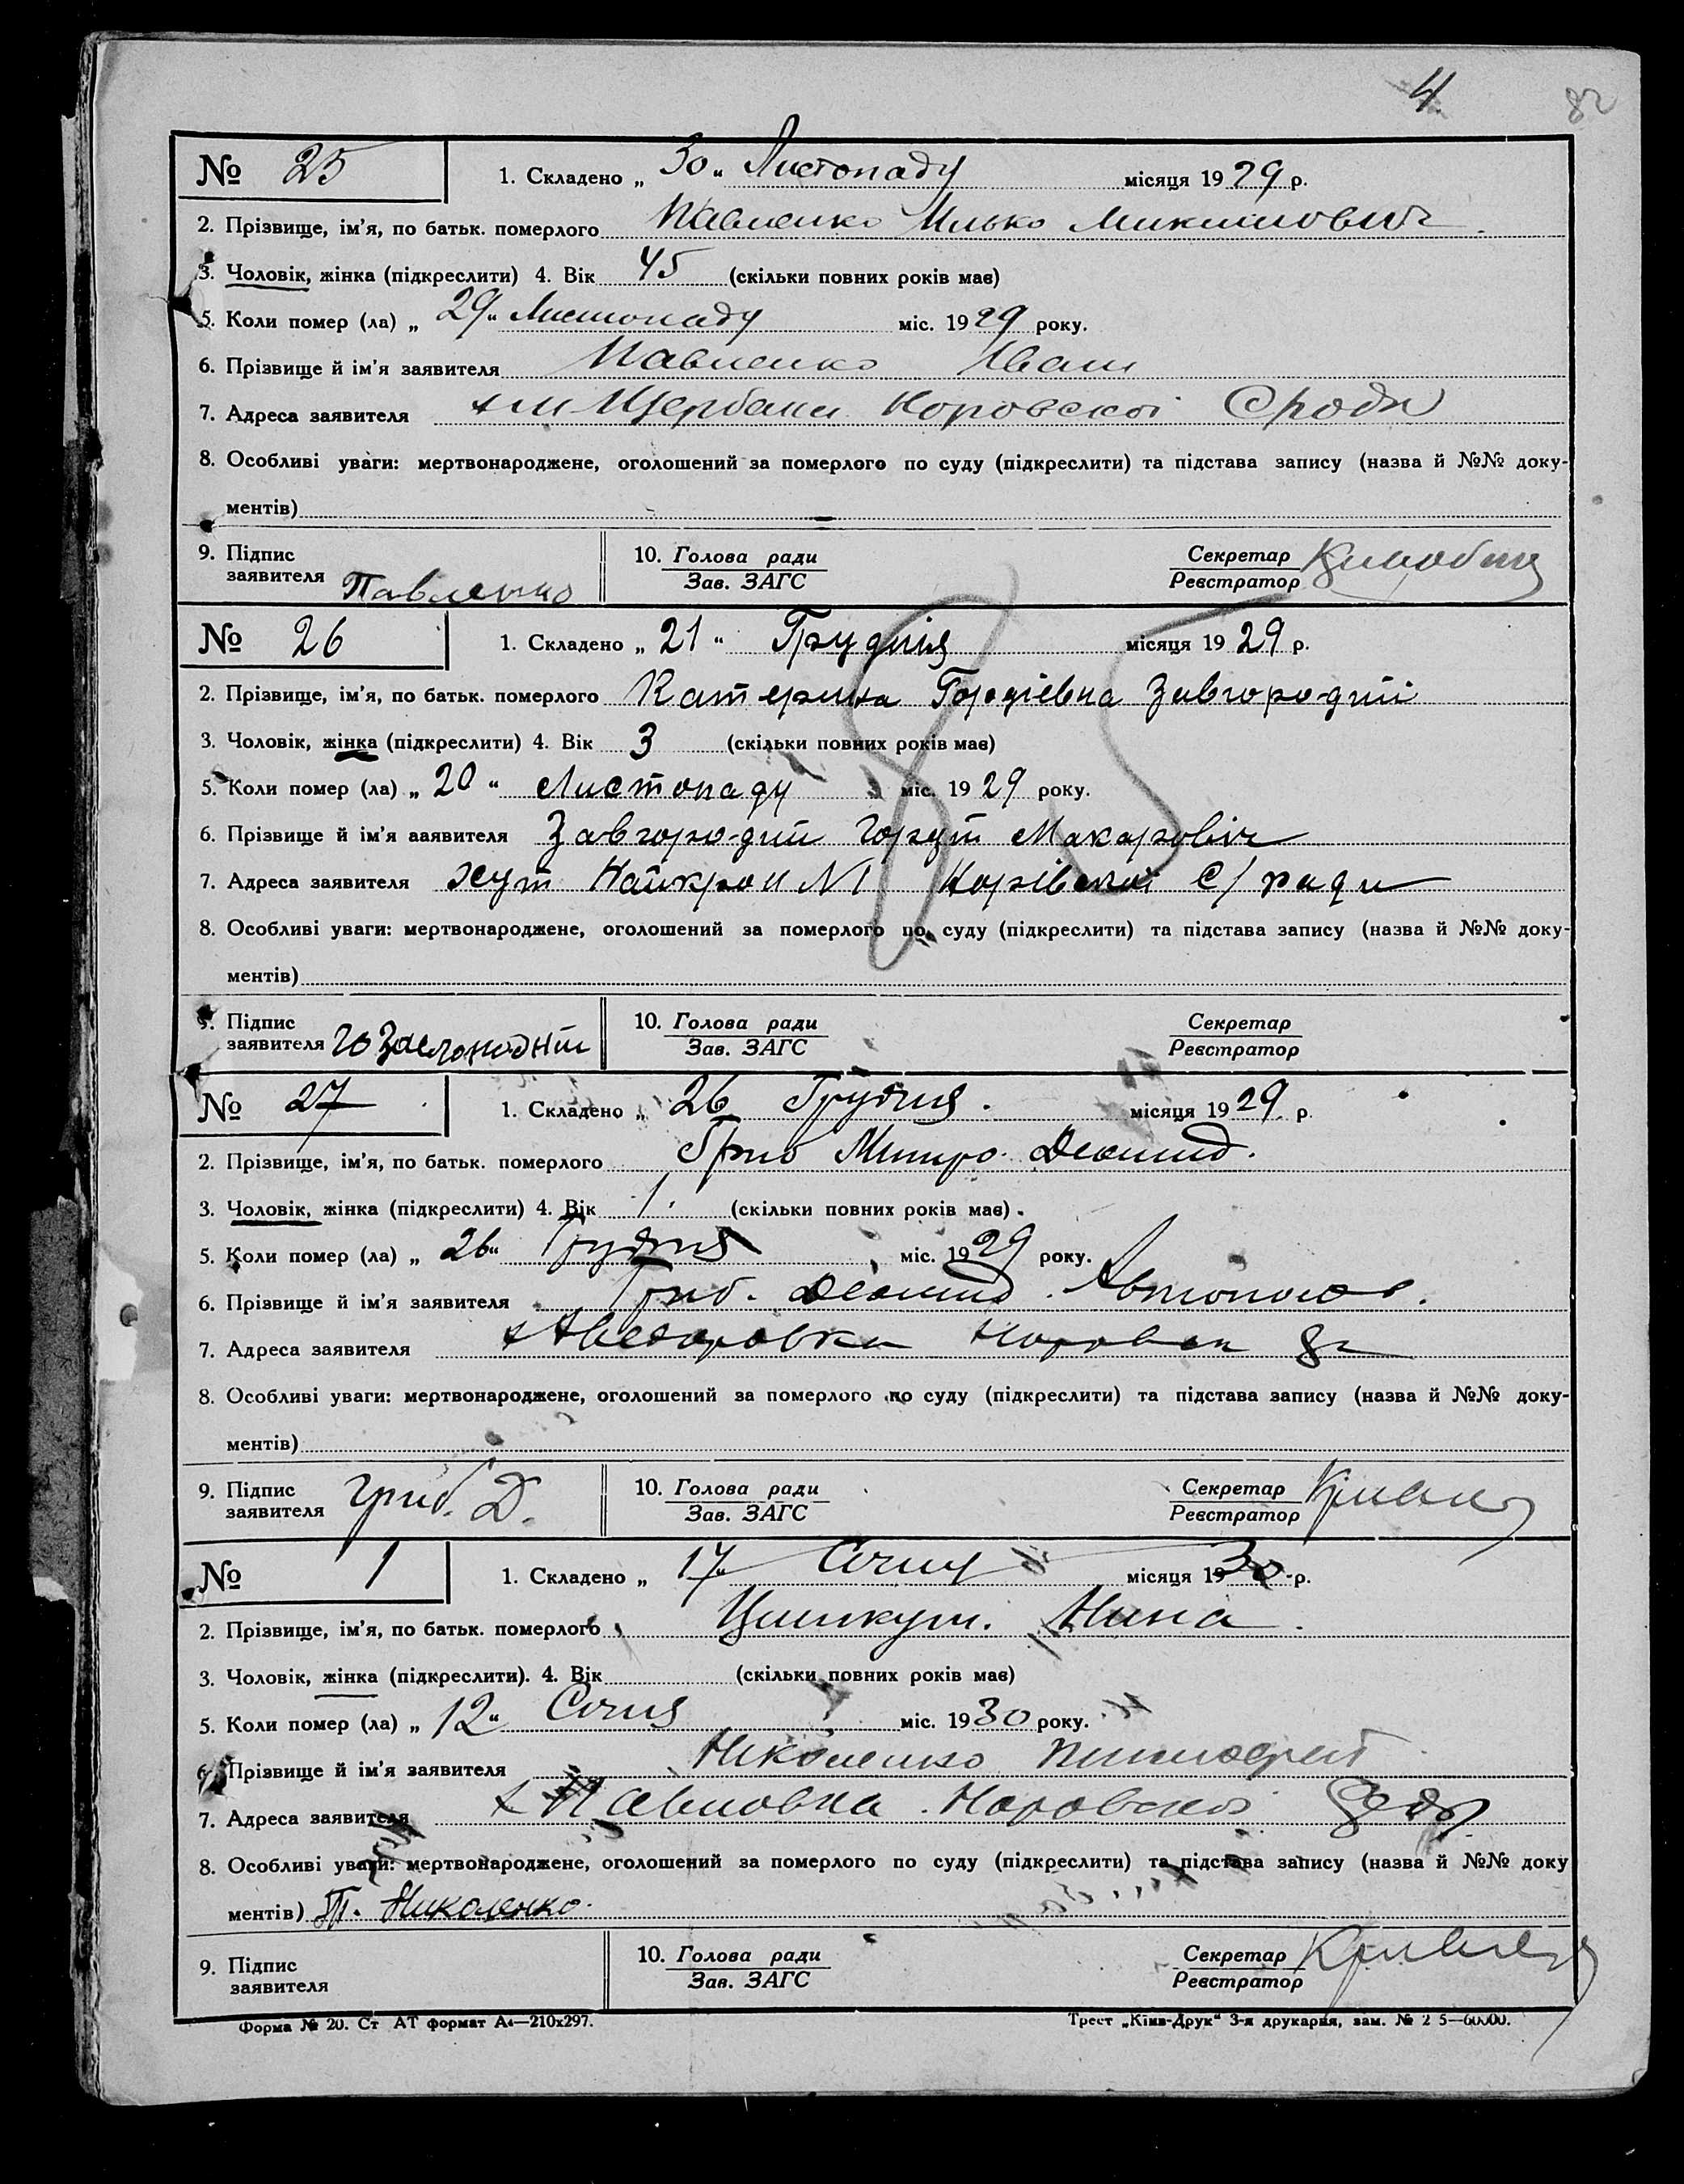 4 82
№ 25 1. Складено „ 30 “ Листопаду місяця 1929 р.
2. Прізвище, ім’я, по батьк. померлого Павленко Илько
3. Чоловік, жінка (підкреслити) 4. Вік 45 (скільки повних років має)
5. Коли помер (ла) „ 29 “ Листопаду міс. 1929 року.
6. Прізвище й ім’я заявителя Павленко Іван
7. Адреса заявителя Щербани Норовской
8. Особливі уваги: мертвонароджене, оголошений за померлого по суду (підкреслити) та підстава запису (назва й №№ доку-
ментів)
9. Підпис 10. Голова ради Секретар
заявителя Павленко Зав. ЗАГС Реєстратор
№ 26 1. Складено „ 21 “ Грудня місяця 1929 р.
2. Прізвище, ім’я, по батьк. померлого Катерина Гордіевна Завгородній
3. Чоловік, жінка (підкреслити) 4. Вік 3 (скільки повних років має)
5. Коли помер (ла) „ 20 “ Листопаду міс. 1929 року.
6. Прізвище й ім’я заявителя Завгородній Макаровіч
7. Адреса заявителя хут Найкрон №1 Норівської С/ради
8. Особливі уваги: мертвонароджене, оголошений за померлого по суду (підкреслити) та підстава запису (назва й №№ доку-
ментів)
9. Підпис 10. Голова ради Секретар
заявителя Зав. ЗАГС Реєстратор
85
№ 27 1. Складено „ 26 Грудня. місяця 1929 р.
2. Прізвище, ім’я, по батьк. померлого Гриб Митро
3. Чоловік, жінка (підкреслити) 4. Вік 1 (скільки повних років має)
5. Коли помер (ла) „ 26 “ Грудня міс. 1929 року.
6. Прізвище й ім’я заявителя Гриб.
7. Адреса заявителя
8. Особливі уваги: мертвонароджене, оголошений за померлого по суду (підкреслити) та підстава запису (назва й №№ доку-
ментів)
9. Підпис 10. Голова ради Секретар
заявителя Гриб. Д. Зав. ЗАГС Реєстратор
№ 1 1. Складено „ 17 “ Січня місяця 1930 р.
2. Прізвище, ім’я, по батьк. померлого Нина
3. Чоловік, жінка (підкреслити). 4. Вік (скільки повних років має)
5. Коли помер (ла) „ 12 “ Січня міс. 1930 року.
6. Прізвище й ім’я заявителя Ніколенко
7. Адреса заявителя х Павловка Норовской
8. Особливі уваги: мертвонароджене, оголошений за померлого по суду (підкреслити) та підстава запису (назва й №№ доку
ментів) Т. Николенко.
9. Підпис 10. Голова ради Секретар
заявителя Зав. ЗАГС Реєстратор
Форма № 20. Ст АТ формат А4—210х297. Трест „Київ-Друк“ 3-я друкарня, зам. № 2 5—60000.